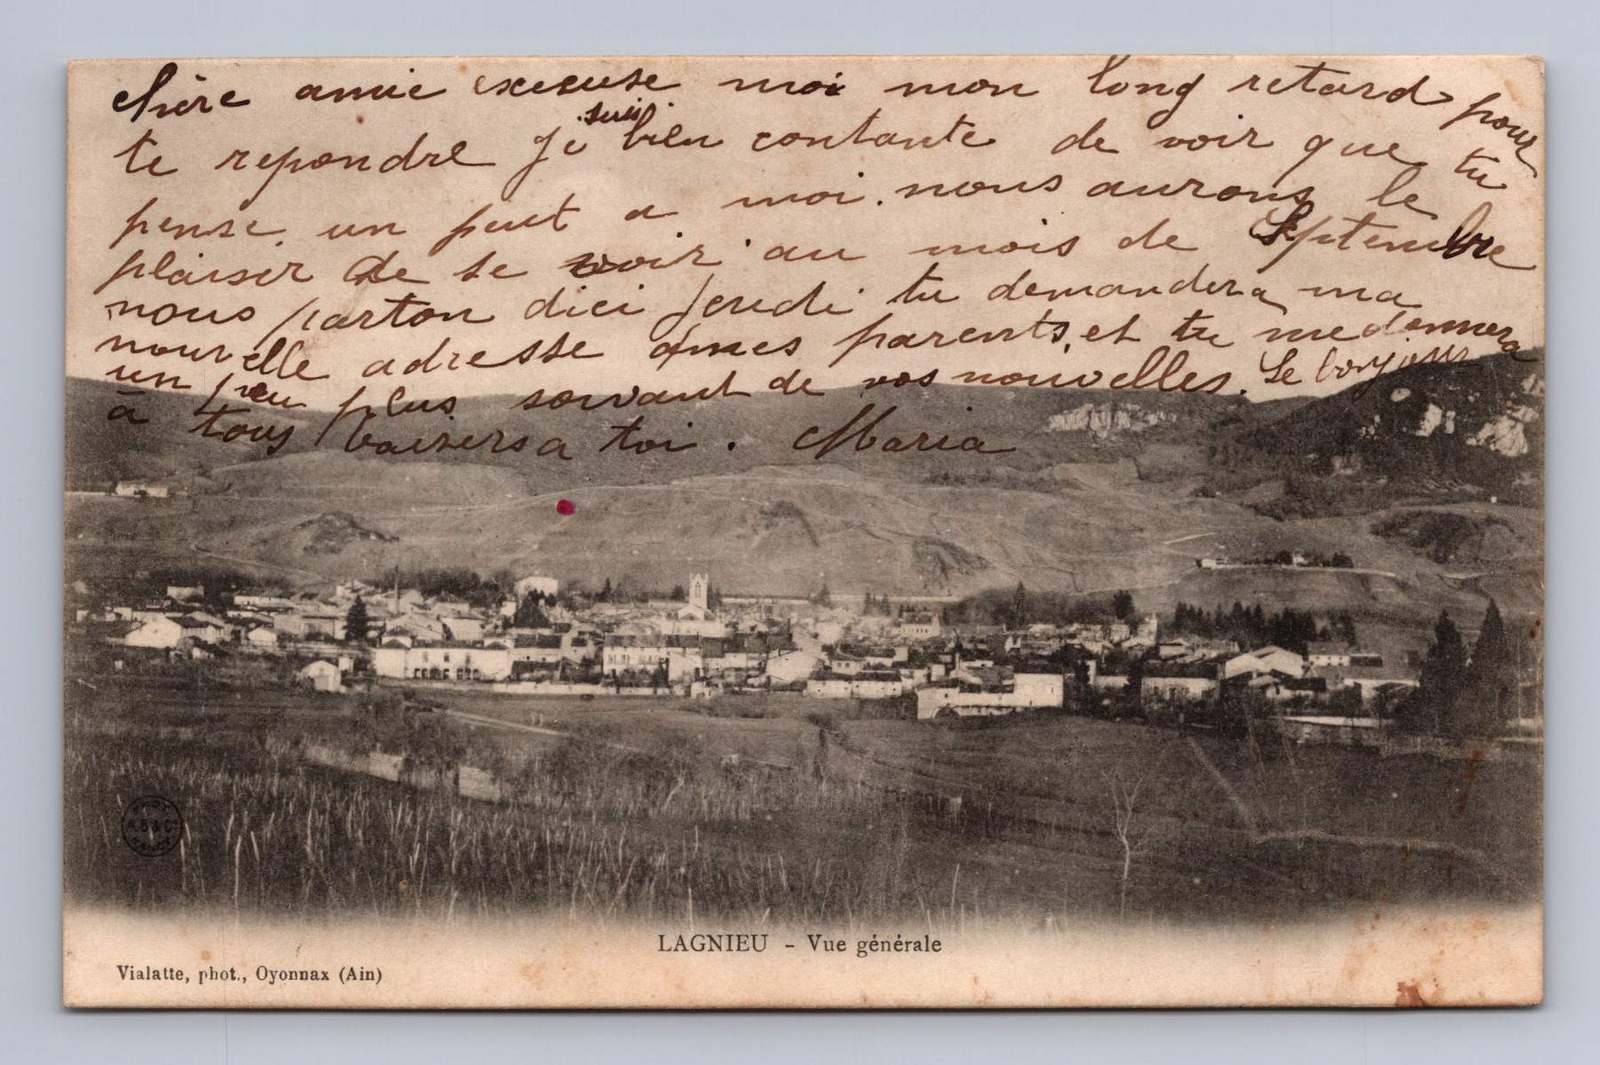 chère amie excscuse moi mon long retard pour
te repondre je suis bien contante de voir que tu
pense un peut a moi. nous aurons le
plaisir de se voir au mois de Septembre
nous parton dici jeudi tu demandera ma
nouvelle adresse a mes parents, et tu me donnera
un peu plus souvant de vos nouvelles. Le bonjour
à tous baisers a toi. Maria
LAGNIEU - Vue générale
Vialatte, phot., Oyonnax (Ain)